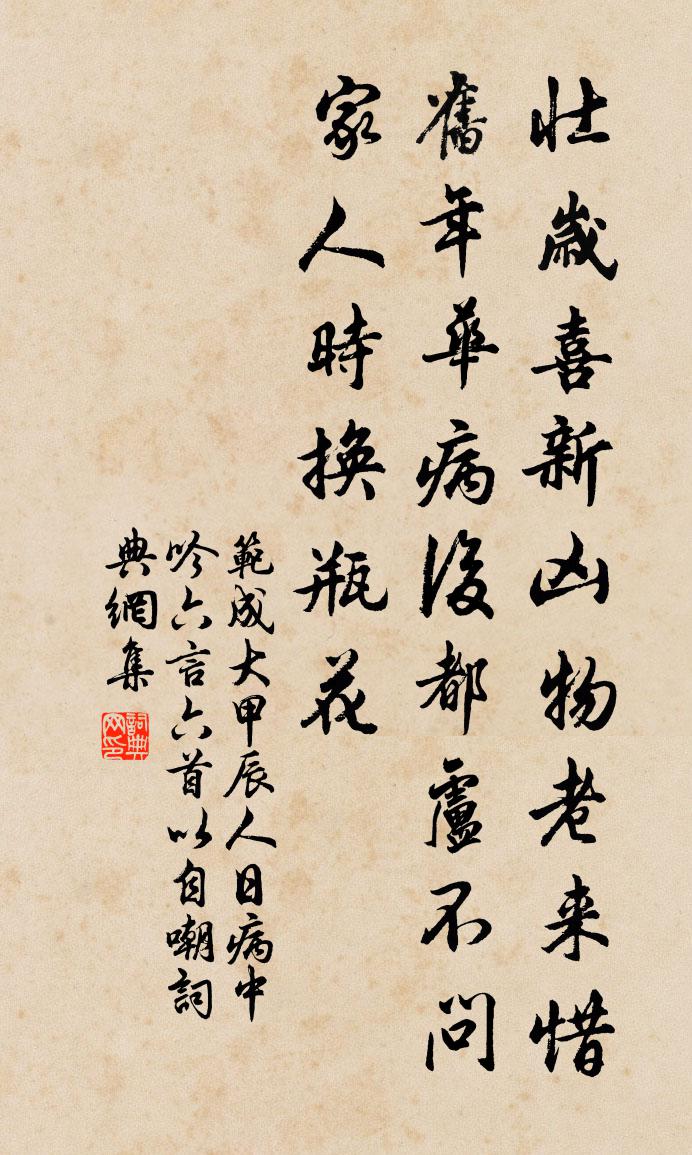 壯歲喜新凶物老来惜
舊年華病後都盧不問
家人時換瓶花
範成大甲辰人日病中
吟六言六首以自嘲詞
典網集
詞典
网印